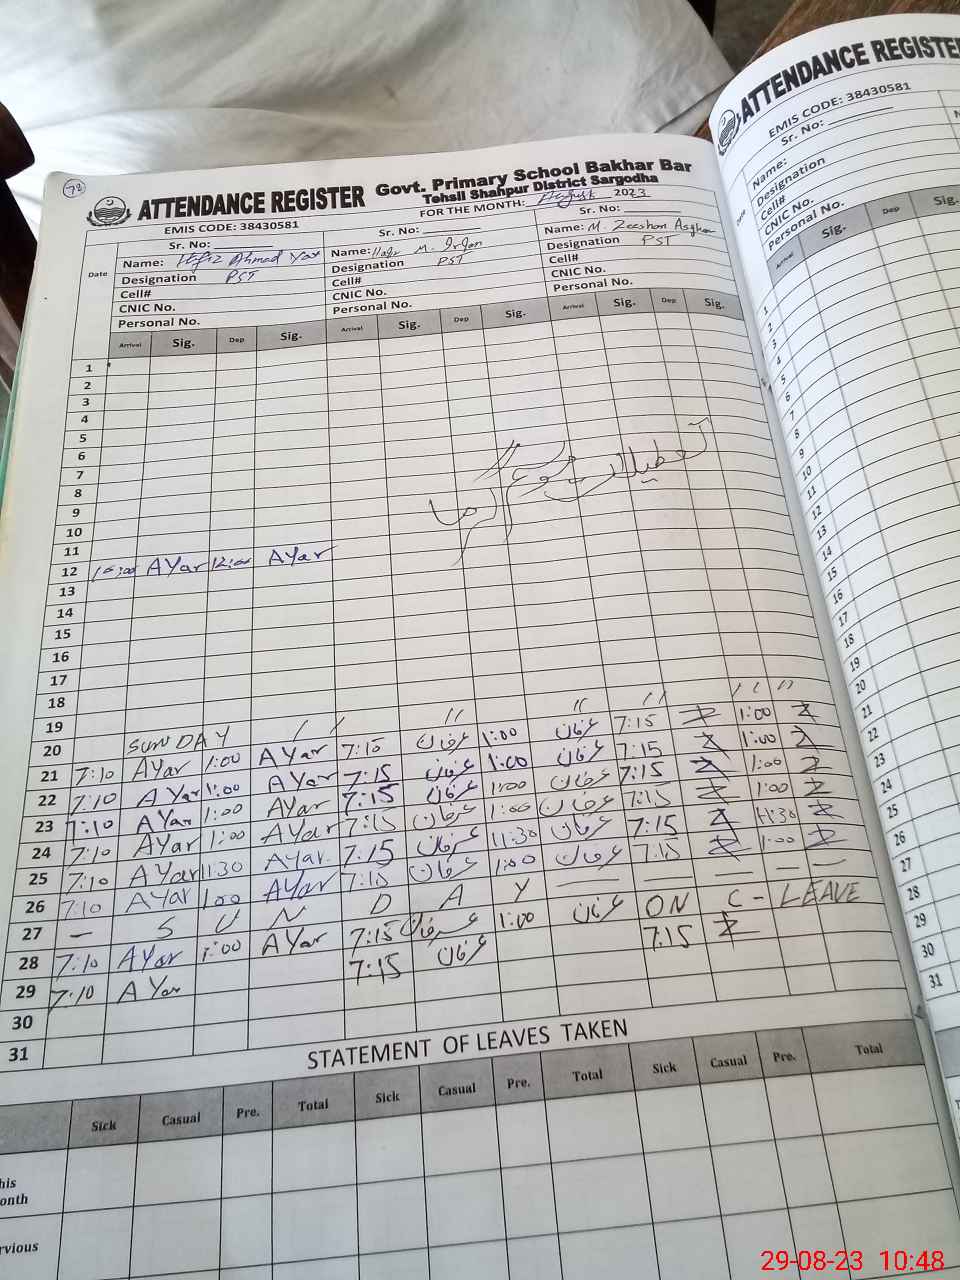 78
ATTENDANCE REGISTER Govt. Primary School Bakhar Bar
Tehsil Shahpur District Sargodha
EMIS CODE: 38430581 FOR THE MONTH: August 2023
Sr. No: Sr. No: Sr. No:
Date Name: Hafiz Ahmad Yar Name: M. Irfan Name: M. Zeeshan Asghar
Designation PST Designation PST Designation PST
Cell# Cell# Cell#
CNIC No. CNIC No. CNIC No.
Personal No. Personal No. Personal No.
Arrival Sig. Dep Sig. Arrival Sig. Dep Sig. Arrival Sig. Dep Sig.
1
2
3
4
5
6
7
8
9
10
11
12 AYar 12:00 AYar
تعطیلات موسم گرما
13
14
15
16
17
18
19
20 SUNDAY / / // // // / / //
21 7:10 AYar 1:00 AYar 7:15 عرفان 1:00 عرفان 7:15 Z 1:00 Z
22 7:10 AYar 1:00 AYar 7:15 عرفان 1:00 عرفان 7:15 Z 1:00 Z
23 7:10 AYar 1:00 AYar 7:15 عرفان 1:00 عرفان 7:15 Z 1:00 Z
24 7:10 AYar 1:00 AYar 7:15 عرفان 1:00 عرفان 7:15 Z 1:00 Z
25 7:10 AYar 11:30 AYar 7:15 عرفان 11:30 عرفان 7:15 Z 11:30 Z
26 7:10 AYar 1:00 AYar 7:15 عرفان 1:00 عرفان 7:15 Z 1:00 Z
27 — S U N D A Y — — — — —
28 7:10 AYar 1:00 AYar 7:15 عرفان 1:00 عرفان ON C - LEAVE
29 7:10 AYar 7:15 عرفان 7:15 Z
30
31
STATEMENT OF LEAVES TAKEN
Sick Casual Pre. Total Sick Casual Pre. Total Sick Casual Pre. Total
ATTENDANCE REGISTER
EMIS CODE: 38430581
Sr. No:
Name:
Date Designation
Cell#
CNIC No.
Personal No.
Arrival Sig. Dep Sig.
1
2
3
4
5
6
7
8
9
10
11
12
13
14
15
16
17
18
19
20
21
22
23
24
25
26
27
28
29
30
31
29-08-23 10:48